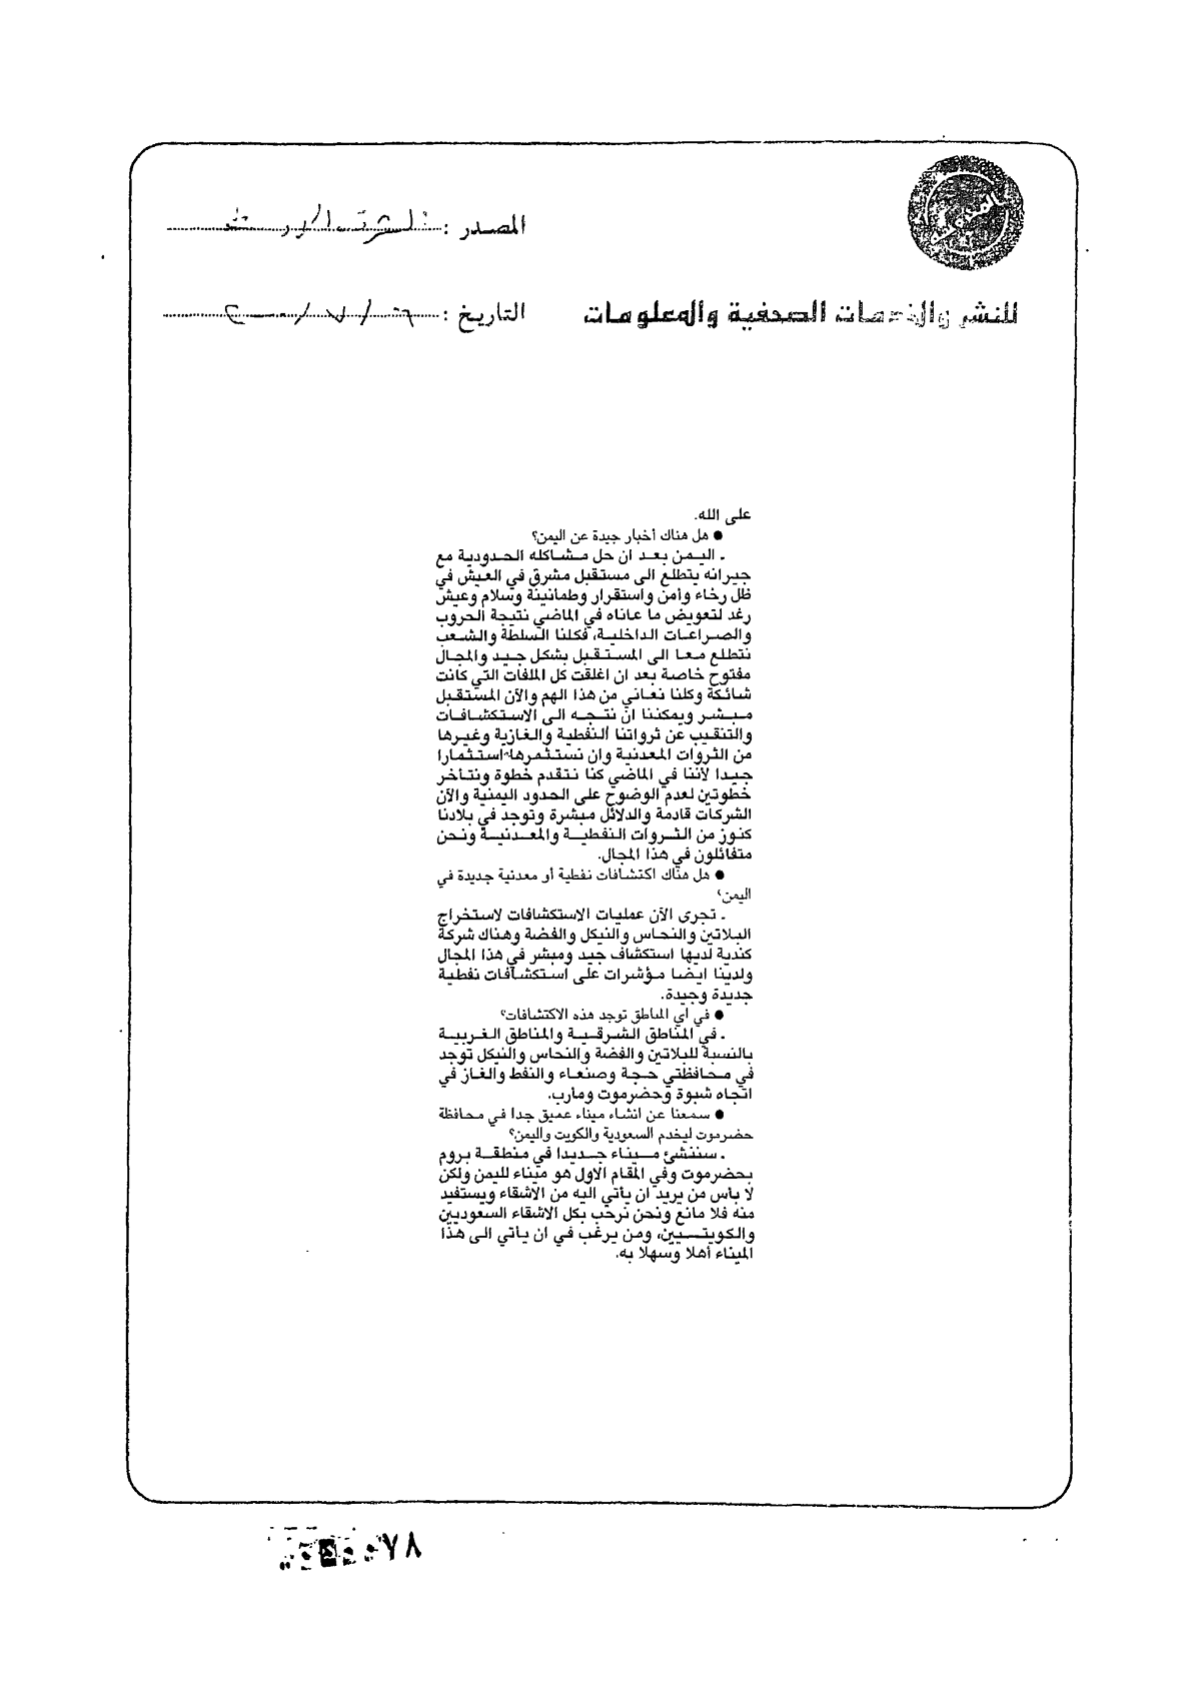 المصدر : الشرق الأوسط
للنشر والخدمات الصحفية والمعلومات
التاريخ :
على الله.
● هل هناك أخبار جيدة عن اليمن؟
. اليمن بعد ان حل مشاكله الحدودية مع
جيرانه يتطلع الى مستقبل مشرق في العيش في
ظل رخاء وأمن واستقرار وطمانينة وسلام وعيش
رغد لتعويض ما عاناه في الماضي نتيجة الحروب
والصراعات الداخلية، فكلنا السلطة والشعب
نتطلع معا الى المستقبل بشكل جيد والمجال
مفتوح خاصة بعد ان اغلقت كل الملفات التي كانت
شائكة وكلنا نعاني من هذا الهم والآن المستقبل
مبشر ويمكننا ان نتجه الى الاستكشافات
والتنقيب عن ثرواتنا النفطية والغازية وغيرها
من الثروات المعدنية وان نستثمرها استثمارا
جيدا لأننا في الماضي كنا نتقدم خطوة ونتاخر
خطوتين لعدم الوضوح على الحدود اليمنية والآن
الشركات قادمة والدلائل مبشرة وتوجد في بلادنا
كنوز من الثروات النفطية والمعدنية ونحن
متفائلون في هذا المجال.
● هل هناك اكتشافات نفطية أو معدنية جديدة في
اليمن؟
. تجرى الآن عمليات الاستكشافات لاستخراج
البلاتين والنحاس والنيكل والفضة وهناك شركة
كندية لديها استكشاف جيد ومبشر في هذا المجال
ولدينا ايضا مؤشرات على استكشافات نفطية
جديدة وجيدة.
● في أي المناطق توجد هذه الاكتشافات؟
. في المناطق الشرقية والمناطق الغربية
بالنسبة للبلاتين والفضة والنحاس والنيكل توجد
في محافظتي حجة وصنعاء والنفط والغاز في
اتجاه شبوة وحضرموت ومأرب.
● سمعنا عن انشاء ميناء عميق جدا في محافظة
حضرموت ليخدم السعودية والكويت واليمن؟
. سننشئ ميناء جديدا في منطقة بروم
بحضرموت وفي المقام الاول هو ميناء لليمن ولكن
لا بأس من يريد ان يأتي اليه من الاشقاء ويستفيد
منه فلا مانع ونحن نرحب بكل الاشقاء السعوديين
والكويتيين، ومن يرغب في ان يأتي الى هذا
الميناء أهلا وسهلا به.
٧٨